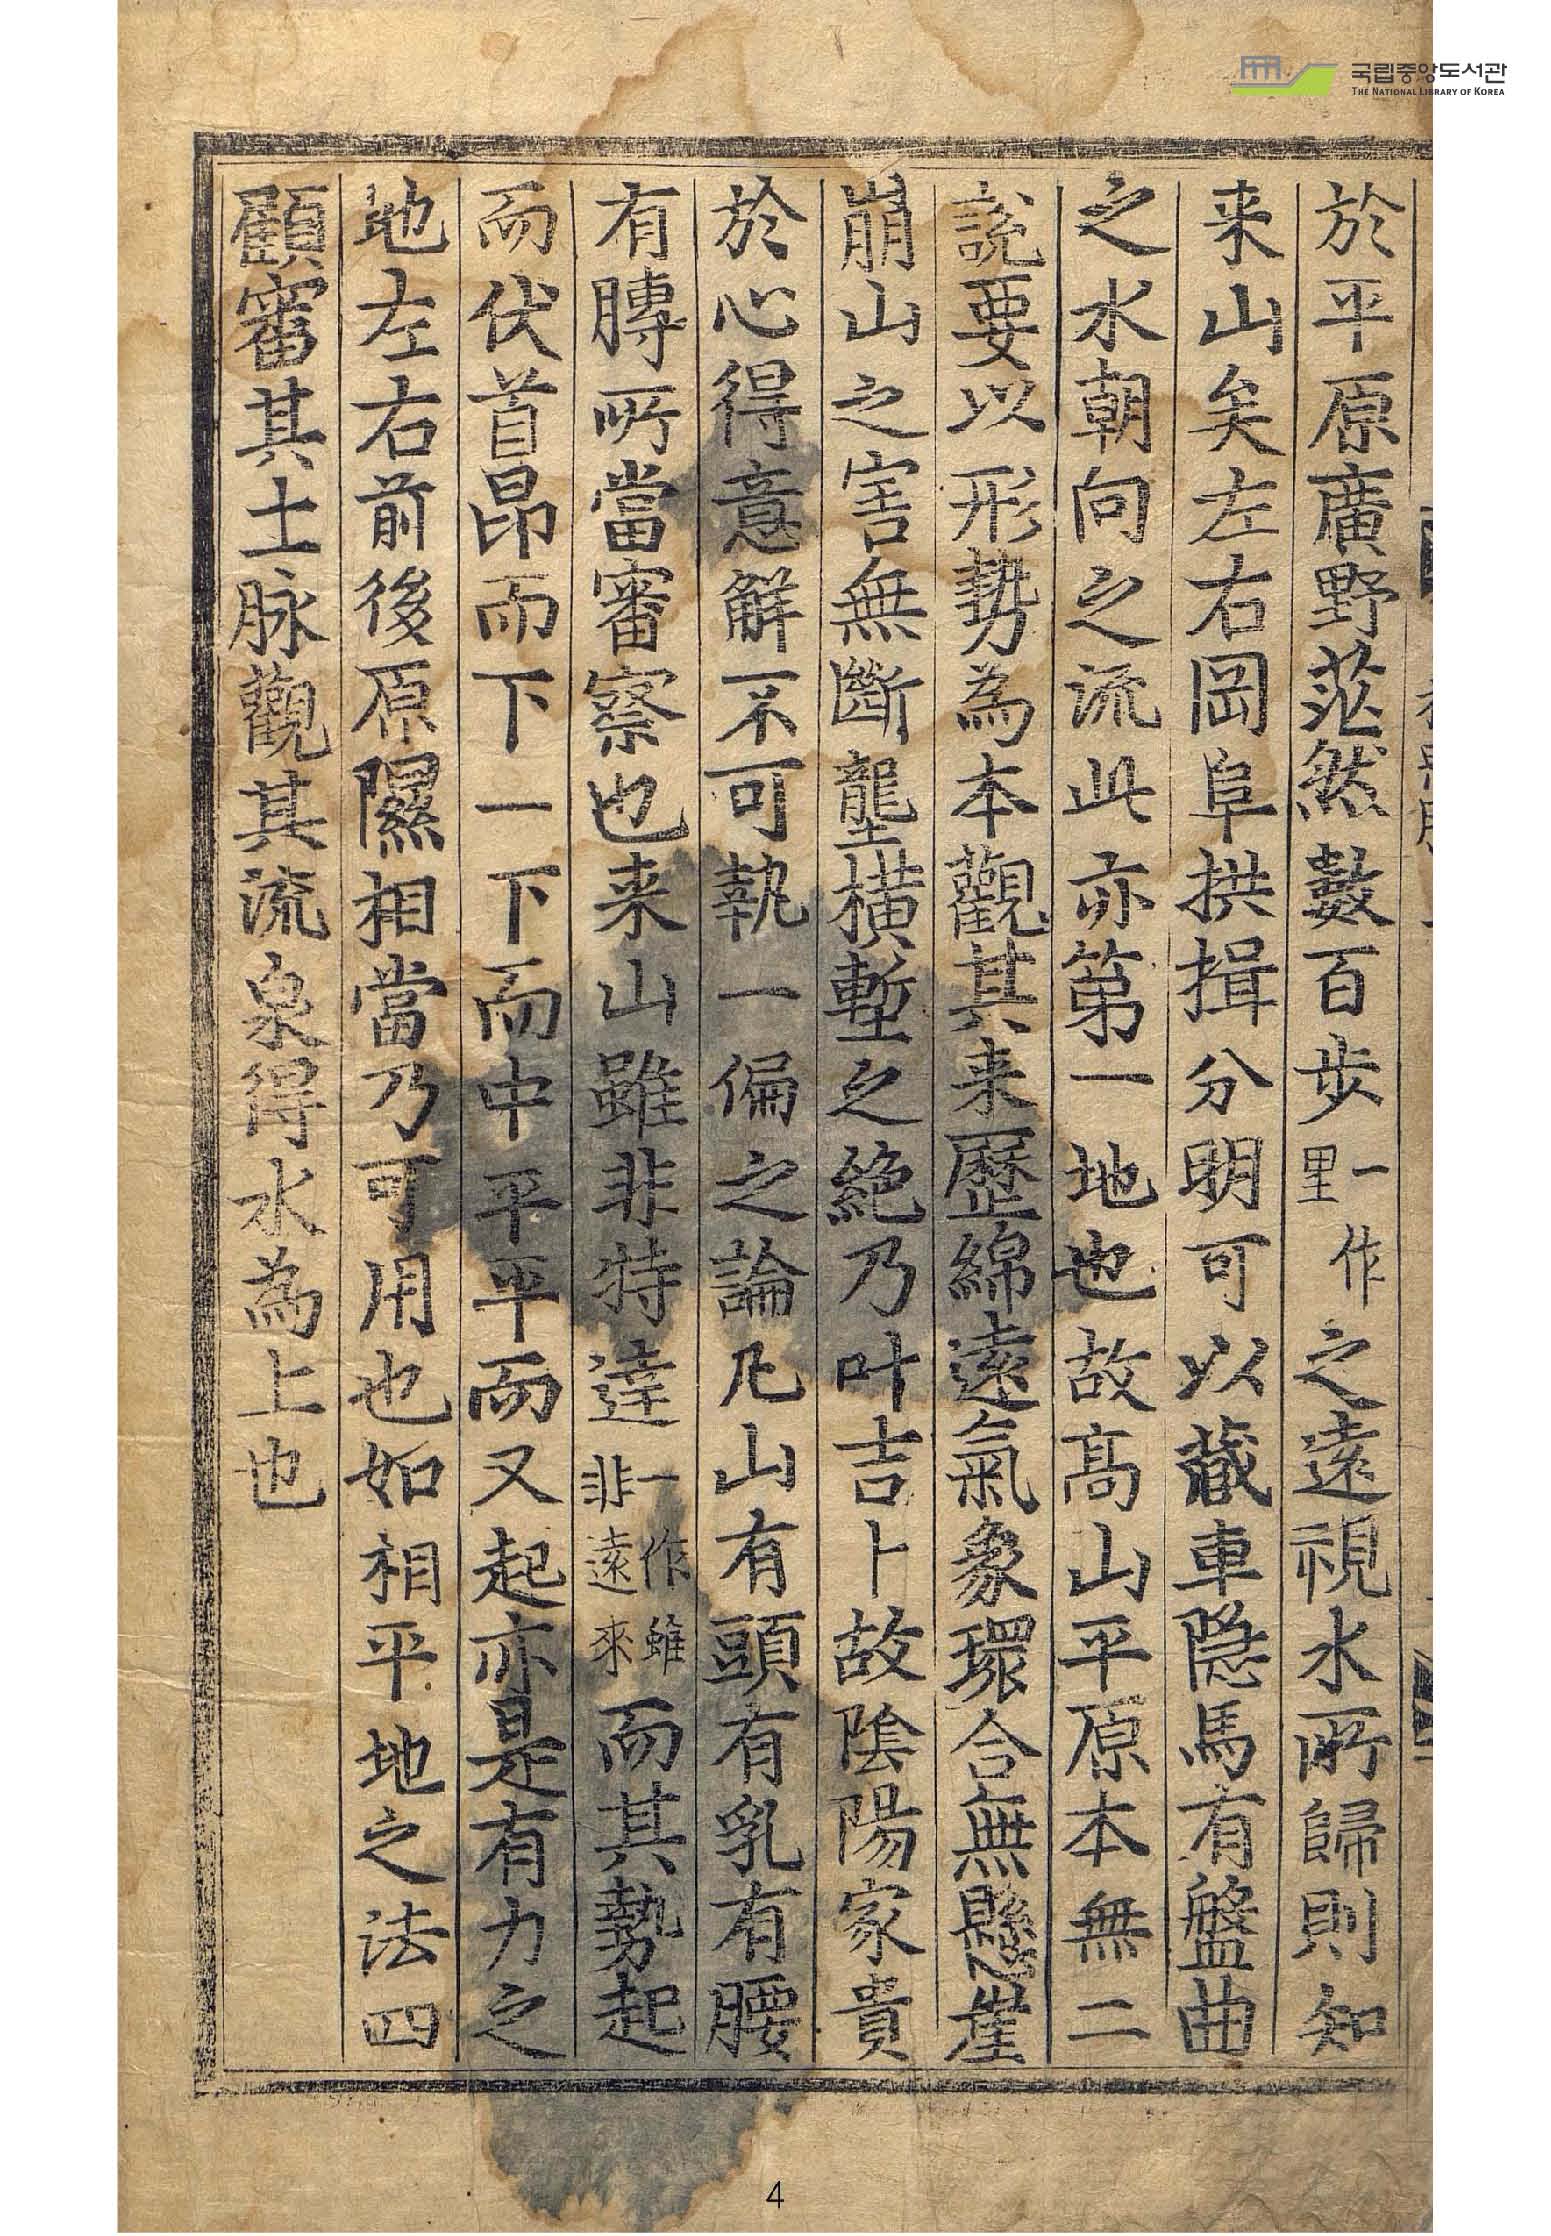 국립중앙도서관
THE NATIONAL LIBRARY OF KOREA
於平原廣野茫然數百步一作里之遠視水所歸則知
来山矣左右岡阜拱揖分明可以藏車隱馬有盤曲
之水朝向之流此亦第一地也故高山平原本無二
說要以形勢為本觀其来歷綿遠氣象環合無懸崖
崩山之害無斷壟橫塹之絶乃叶吉卜故陰陽家貴
於心得意解不可執一偏之論凡山有頭有乳有腰
有膞所當審察也来山雖非特達一作雖非遠來而其勢起
而伏首昂而下一下而中平平而又起亦是有力之
地左右前後原隰相當乃可用也如相平地之法四
顧審其土脉觀其流泉得水為上也
4